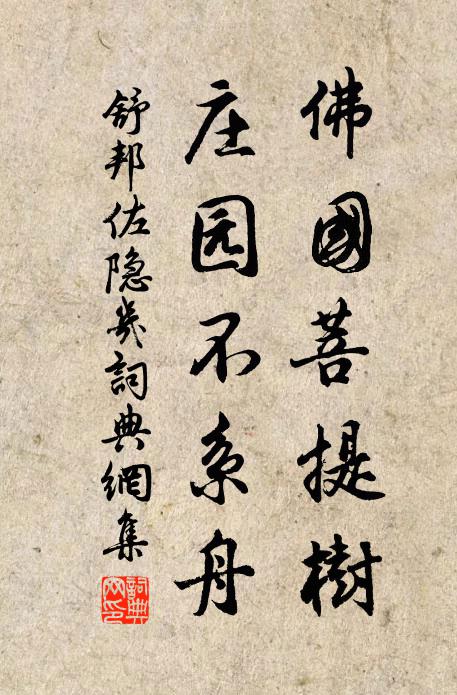 佛國菩提樹
庄园不系舟
舒邦佐隐几詞典網集
詞典网印